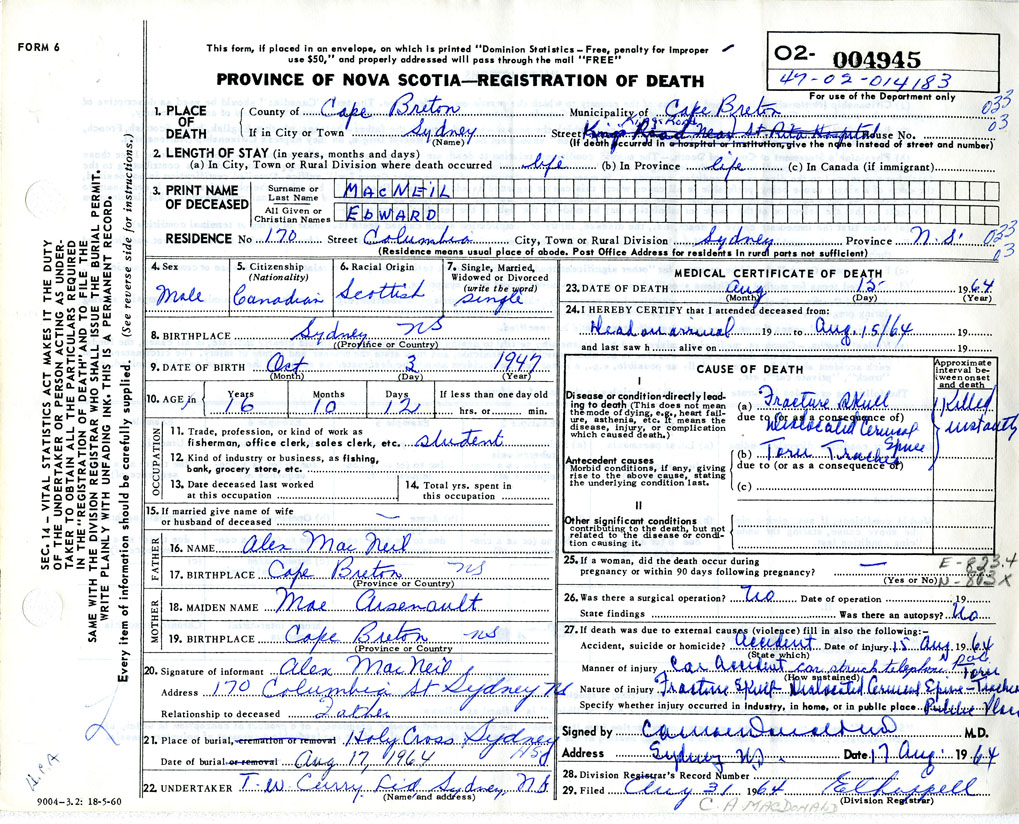 FORM 6
This form, if placed in an envelope, on which is printed "Dominion Statistics – Free, penalty for improper
use $50," and properly addressed will pass through the mail "FREE"
PROVINCE OF NOVA SCOTIA—REGISTRATION OF DEATH
O2- 004945
47-02-014183
For use of the Department only
1. PLACE OF DEATH
County of Cape Breton Municipality of Cape Breton 033
If in City or Town Sydney Street Kings Road Kings Road Near St Rita Hospital House No. 03
(Name) (If death occurred in a hospital or institution, give the name instead of street and number)
2. LENGTH OF STAY (in years, months and days)
(a) In City, Town or Rural Division where death occurred life (b) In Province life (c) In Canada (if immigrant)
3. PRINT NAME OF DECEASED
Surname or Last Name MACNEIL
All Given or Christian Names EDWARD
RESIDENCE No 170 Street Columbia City, Town or Rural Division Sydney Province N.S. 033
(Residence means usual place of abode. Post Office Address for residents in rural parts not sufficient) 03
4. Sex
Male
5. Citizenship (Nationality)
Canadian
6. Racial Origin
Scottish
7. Single, Married, Widowed or Divorced (write the word)
single
8. BIRTHPLACE Sydney NS
(Province or Country)
9. DATE OF BIRTH Oct 3 1947
(Month) (Day) (Year)
10. AGE in Years Months Days If less than one day old
16 10 12 hrs. or min.
OCCUPATION
11. Trade, profession, or kind of work as
fisherman, office clerk, sales clerk, etc. student
12. Kind of industry or business, as fishing,
bank, grocery store, etc.
13. Date deceased last worked
at this occupation
14. Total yrs. spent in
this occupation
15. If married give name of wife
or husband of deceased —
FATHER
16. NAME Alex MacNeil
17. BIRTHPLACE Cape Breton NS
(Province or Country)
MOTHER
18. MAIDEN NAME Mae Arsenault
19. BIRTHPLACE Cape Breton NS
(Province or Country
20. Signature of informant Alex MacNeil
Address 170 Columbia St Sydney NS
Relationship to deceased Father
21. Place of burial, cremation or removal Holy Cross, Sydney
NS
Date of burial or removal Aug 17, 1964
22. UNDERTAKER T. W. Curry Ltd Sydney, NS
(Name and address)
9004-3.2: 18-5-60
MEDICAL CERTIFICATE OF DEATH
23. DATE OF DEATH Aug 15 1964
(Month) (Day) (Year)
24. I HEREBY CERTIFY that I attended deceased from:
Dead on arrival 19 to Aug. 15/64 19
and last saw h alive on 19
CAUSE OF DEATH
Approximate interval between onset and death
I
Disease or condition directly leading to death (This does not mean
the mode of dying, e.g., heart failure, asthenia, etc. It means the
disease, injury, or complication
which caused death.)
(a) Fracture Skull
due to (or as a consequence of)
Dislocated Cervical Spine
(b) Torn Trachea
due to (or as a consequence of)
(c)
Killed instantly
Antecedent causes
Morbid conditions, if any, giving
rise to the above cause, stating
the underlying condition last.
II
Other significant conditions
contributing to the death, but not
related to the disease or condition causing it.
25. If a woman, did the death occur during
pregnancy or within 90 days following pregnancy? — E-823.4
(Yes or No) N-803X
26. Was there a surgical operation? No Date of operation 19
State findings Was there an autopsy? No
27. If death was due to external causes (violence) fill in also the following:–
Accident, suicide or homicide? Accident Date of injury 15 Aug 1964
(State which)
Manner of injury Car Accident car struck telephone pole
(How sustained)
Nature of injury Fracture Skull Dislocated Cervical Spine – Torn Trachea
Specify whether injury occurred in industry, in home, or in public place Public Place
Signed by M.D.
Address Sydney N.S. Date 17 Aug. 1964
28. Division Registrar's Record Number
29. Filed Aug 31 1964
(Division Registrar)
C. A. MACDONALD
SEC. 14 – VITAL STATISTICS ACT MAKES IT THE DUTY
OF THE UNDERTAKER OR PERSON ACTING AS UNDERTAKER TO OBTAIN ALL THE PARTICULARS REQUIRED
IN THE "REGISTRATION OF DEATH" AND TO FILE THE
SAME WITH THE DIVISION REGISTRAR WHO SHALL ISSUE THE BURIAL PERMIT.
WRITE PLAINLY WITH UNFADING INK. THIS IS A PERMANENT RECORD.
Every item of information should be carefully supplied. (See reverse side for instructions.)